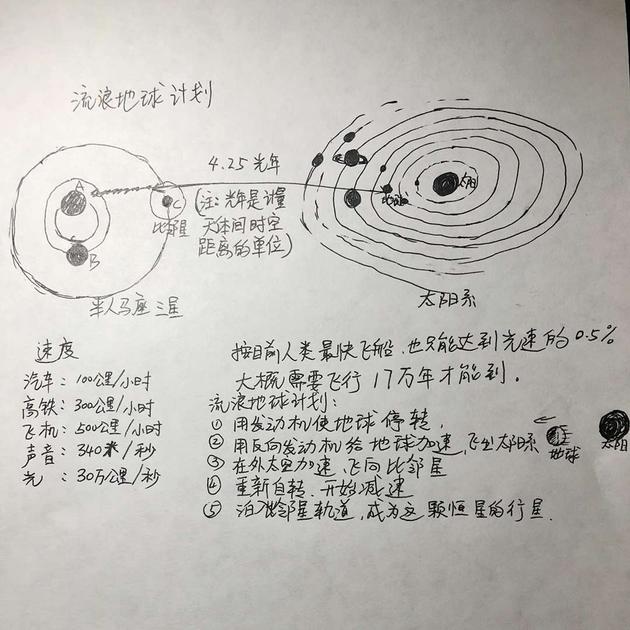 流浪地球计划
4.25 光年
A
B
C
比邻星
(注:光年是计量
天体间时空
距离的单位)
半人马座三星
地球
太阳
太阳系
速度
汽车:100公里/小时
高铁:300公里/小时
飞机:500公里/小时
声音:340米/秒
光:30万公里/秒
按目前人类最快飞船,也只能达到光速的0.5%
大概需要飞行17万年才能到。
流浪地球计划:
① 用发动机使地球停转,
② 用反向发动机给地球加速,飞出太阳系
③ 在外太空加速,飞向比邻星
④ 重新自转,开始减速
⑤ 泊入比邻星轨道,成为这颗恒星的行星.
地球
太阳